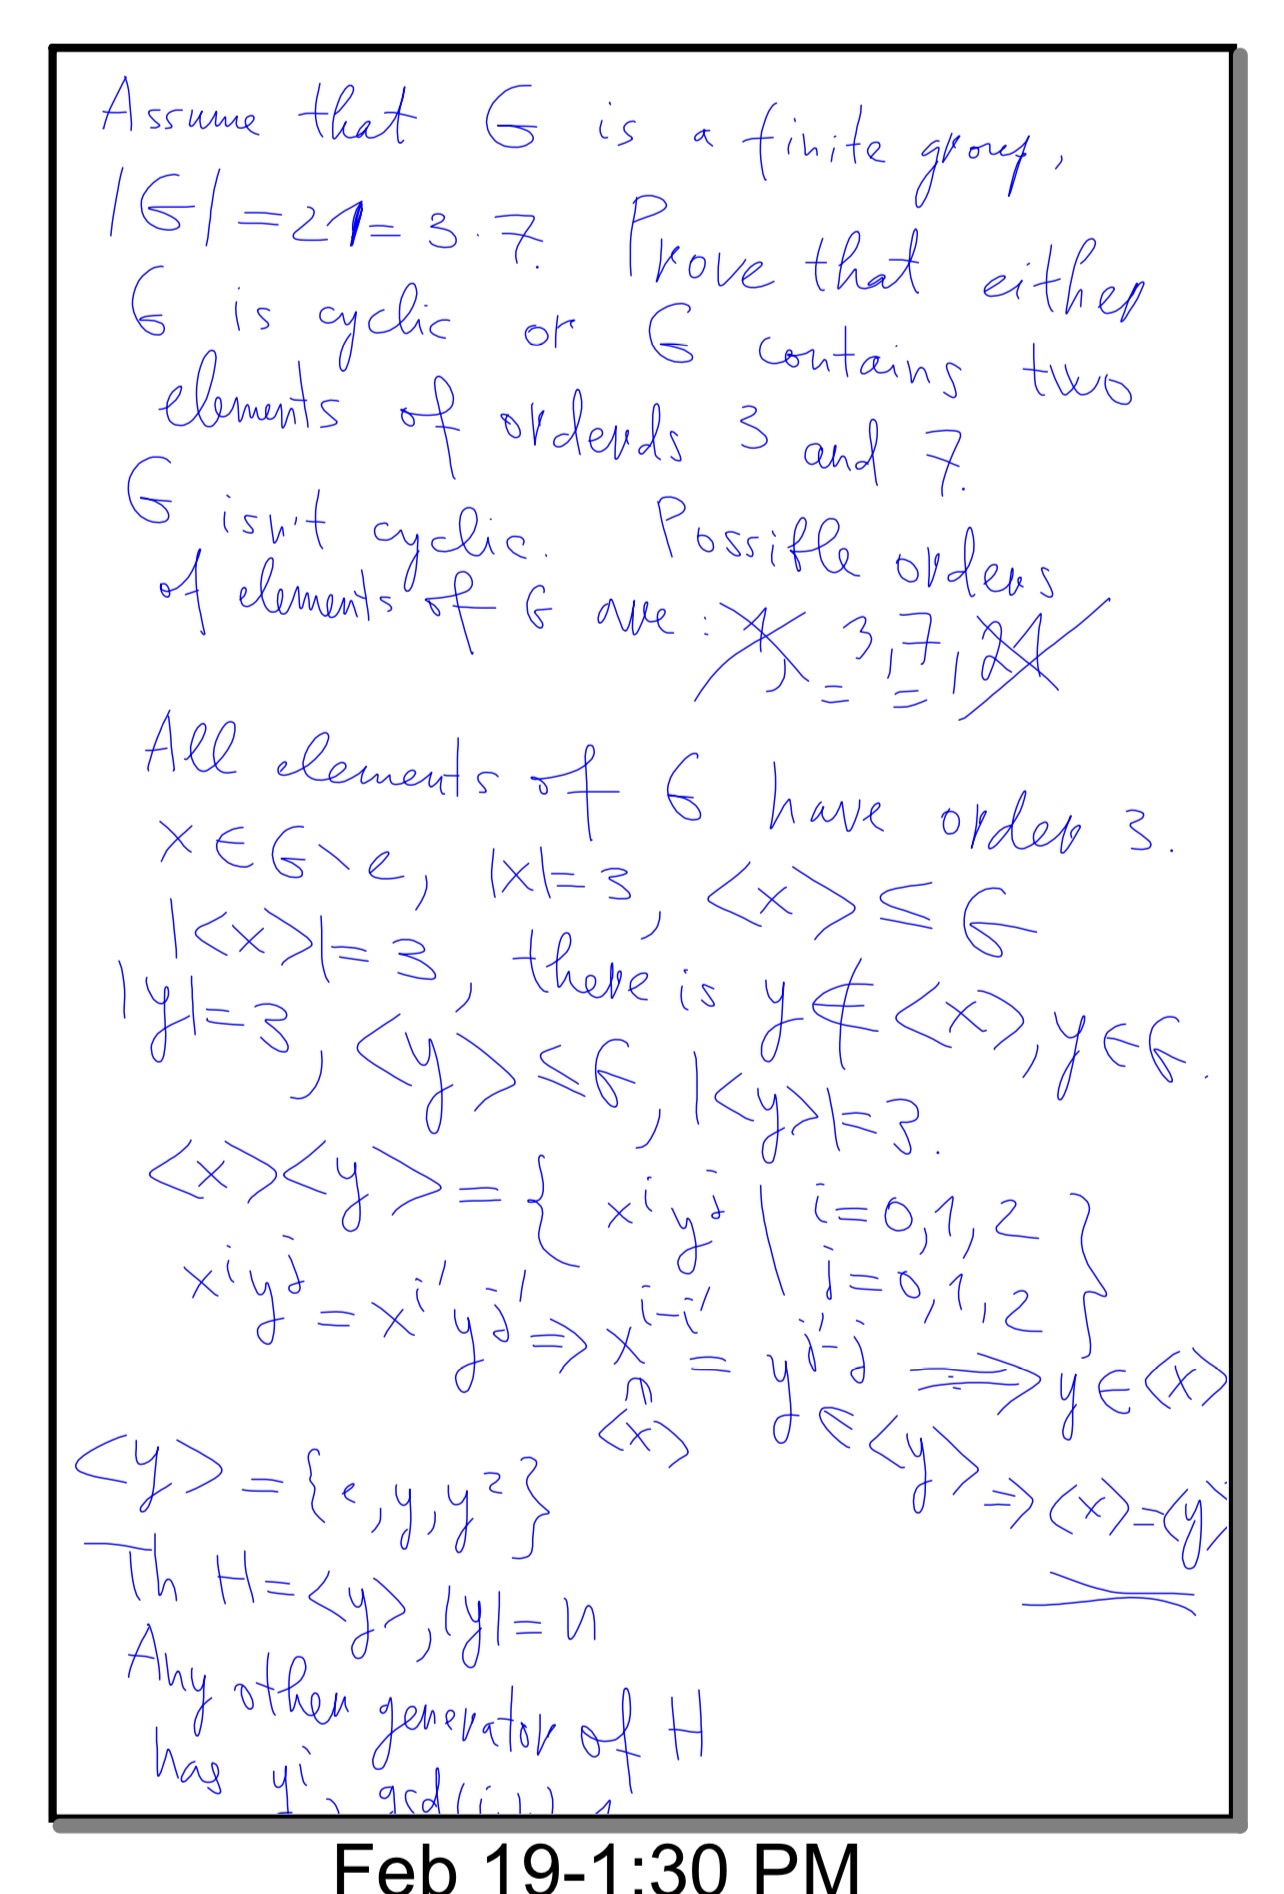 Assume that G is a finite group,
|G| = 21 = 3·7. Prove that either
G is cyclic or G contains two
elements of orderds 3 and 7.
G isn't cyclic. Possible orders
of elements of G are: 1, 3, 7, 21
All elements of G have order 3.
x ∈ G \ e, |x| = 3, <x> ≤ G
|<x>| = 3, there is y ∉ <x>, y ∈ G.
|y| = 3, <y> ≤ G, |<y>| = 3.
<x><y> = { x^i y^j | i = 0, 1, 2
j = 0, 1, 2 }
x^i y^j = x^i' y^j' ⇒ x^(i-i') = y^(j'-j) ⇒ y ∈ <x>
∩
<x> ∈ <y> ⇒ <x> = <y>
<y> = {e, y, y²}
Th H = <y>, |y| = n
Any other generator of H
has y^i, gcd(i,
Feb 19-1:30 PM